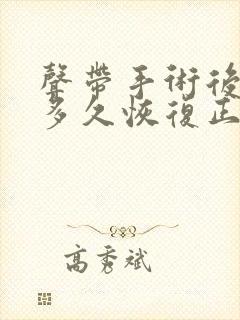 聲帶手術後
多久恢復正
高秀斌